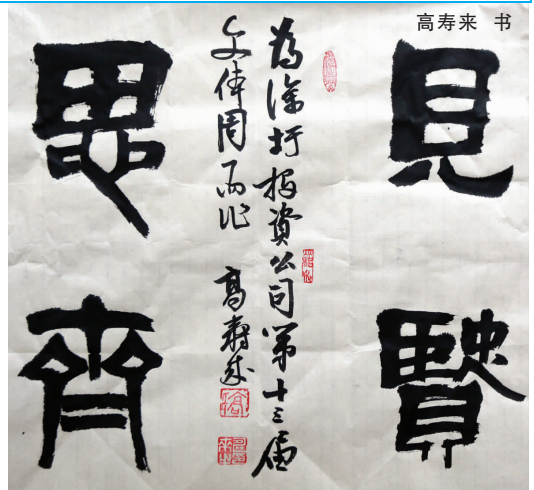 高寿来 书
見
賢
思
齊
為漆圩投資公司第十三届
文体周而作
高寿来